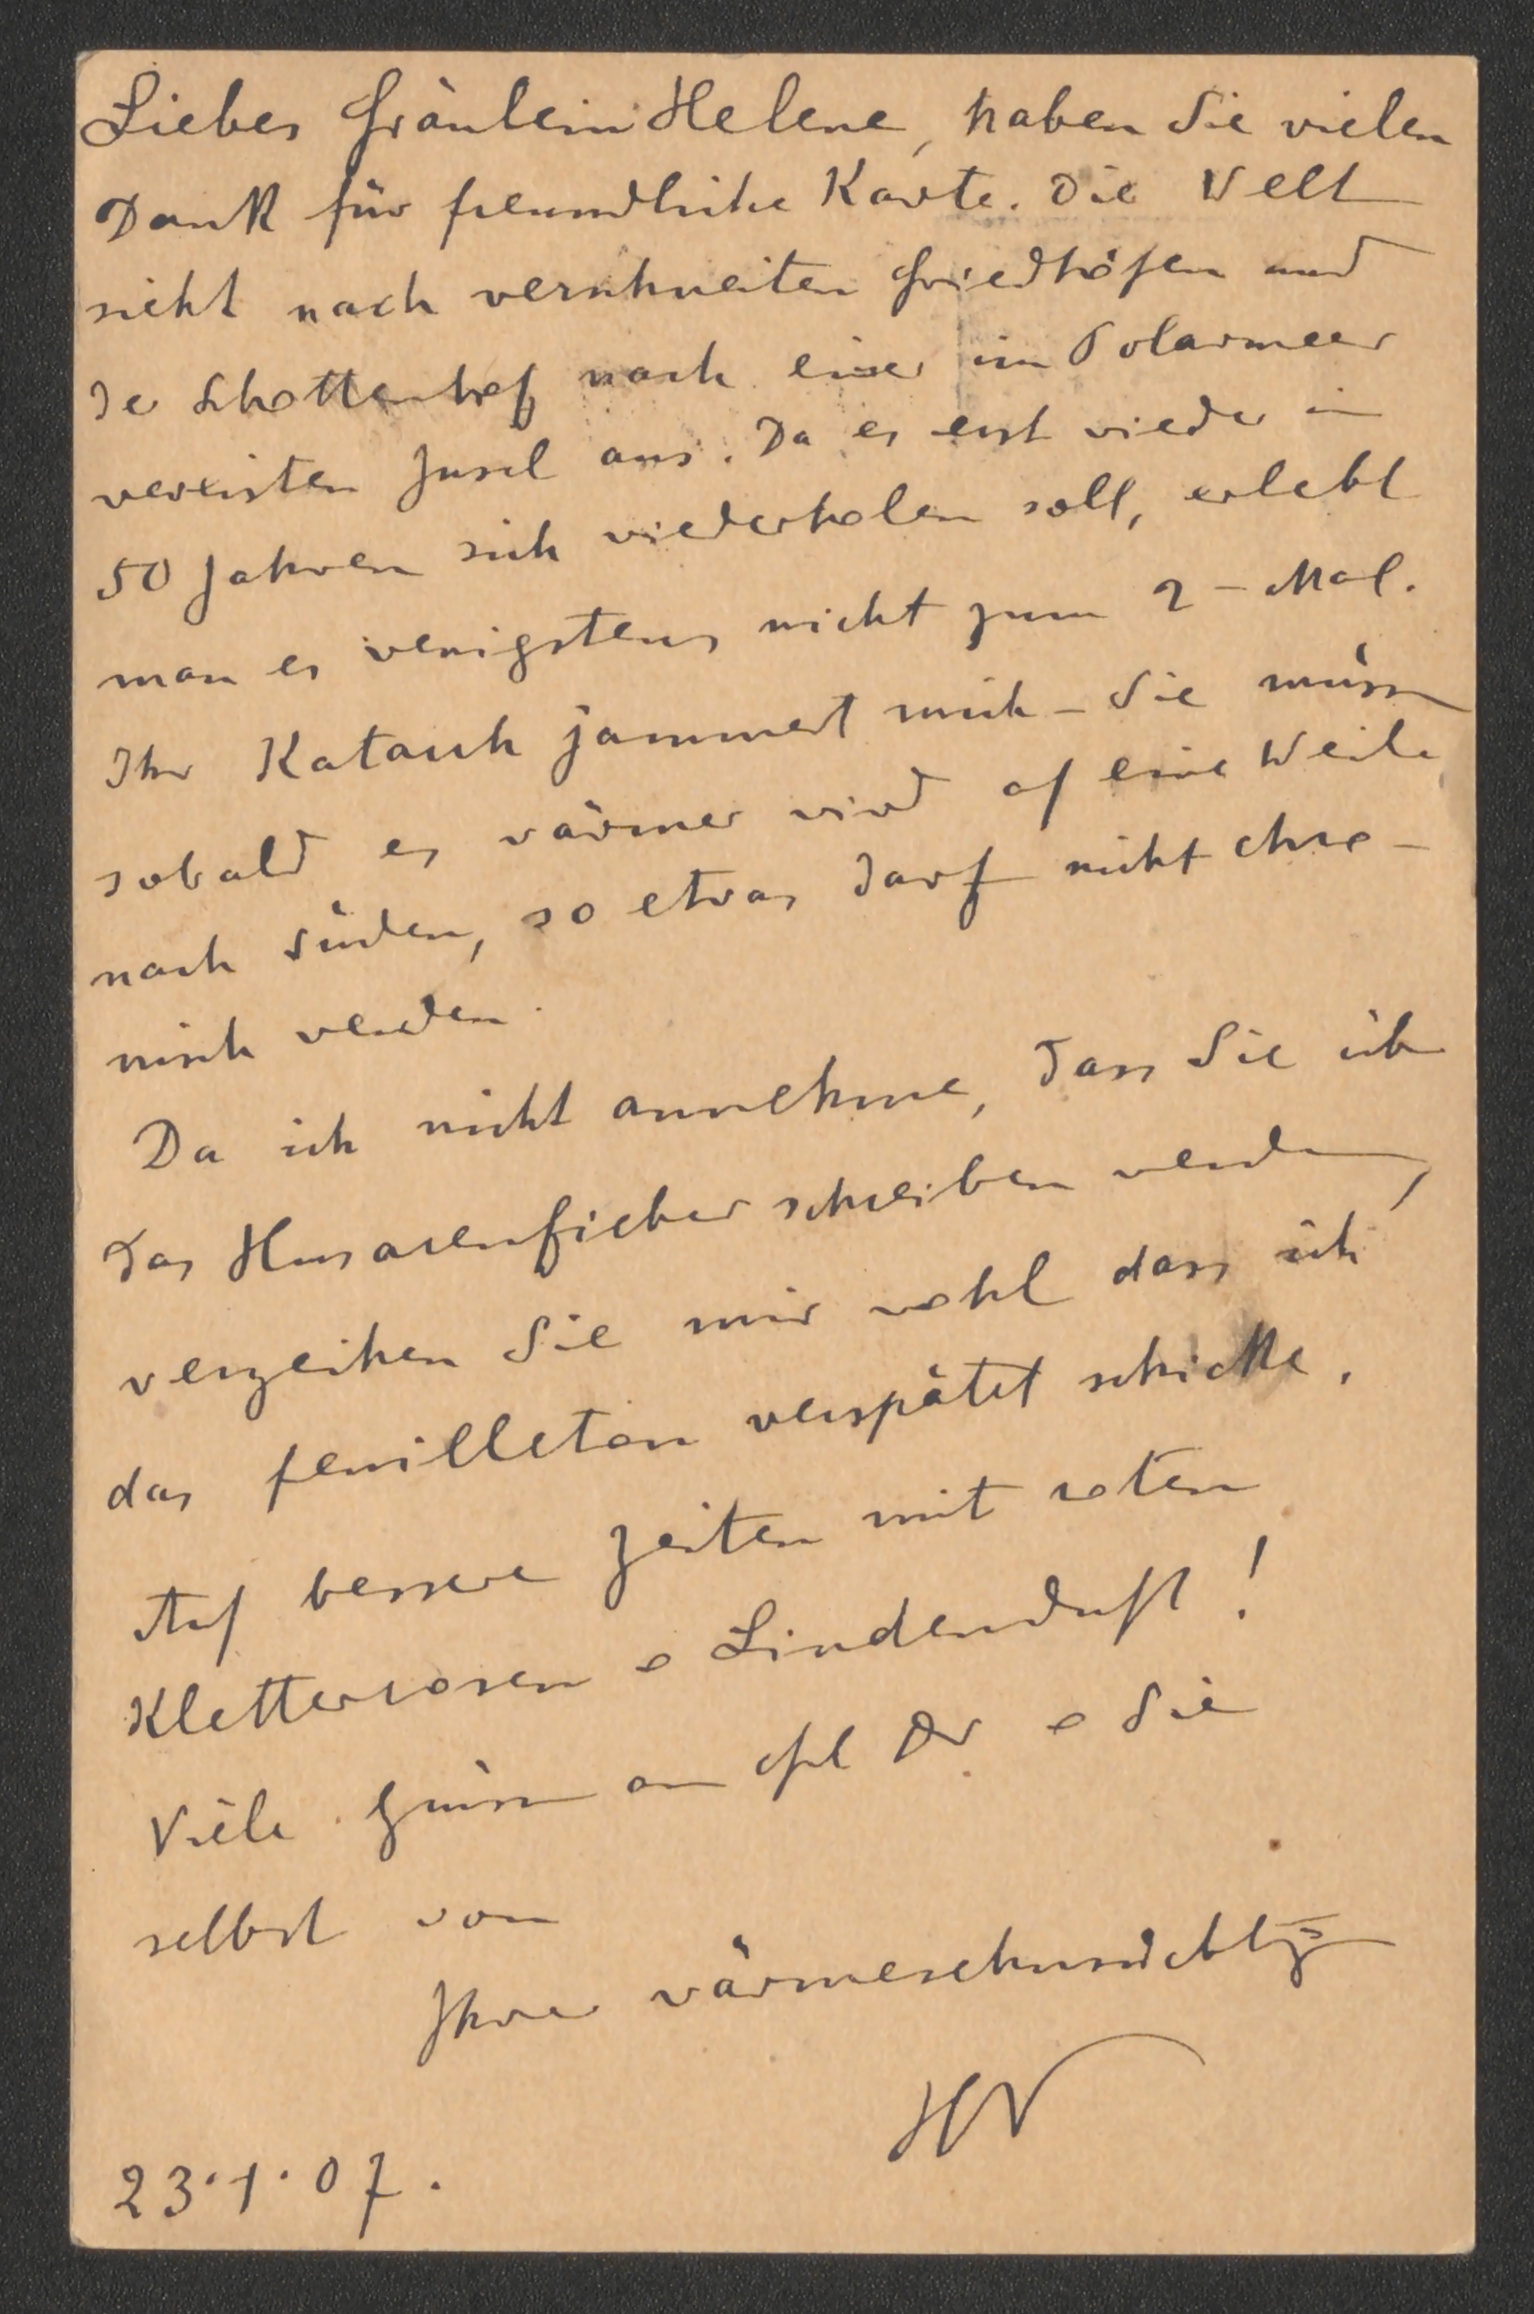 Liebes Fräulein Helene, haben Sie vielen
Dank für freundliche Karte. Die Welt
sieht nach verschneiten Friedhöfen und
der Schottenhof nach einer im Polarmeer
vereisten Insel aus. Da es erst wieder in
50 Jahren sich wiederholen soll, erlebt
man es wenigstens nicht zum 2-Mal.
Ihr Katarrh jammert mich – Sie müssen
sobald es wärmer wird auf eine Weile
nach Süden, so etwas darf nicht chro-
nisch werden.
Da ich nicht annehme, dass Sie üb
das Husarenfieber schreiben werden,
verzeihen Sie mir wohl dass ich
das Feuilleton verspätet schicke.
Auf bessere Zeiten mit roten
Kletterrosen & Lindenduft!
Viele Grüsse an Frl Dr & Sie
selbst von
Ihrer wärmesehnsüchtigen
HV
23.1.07.